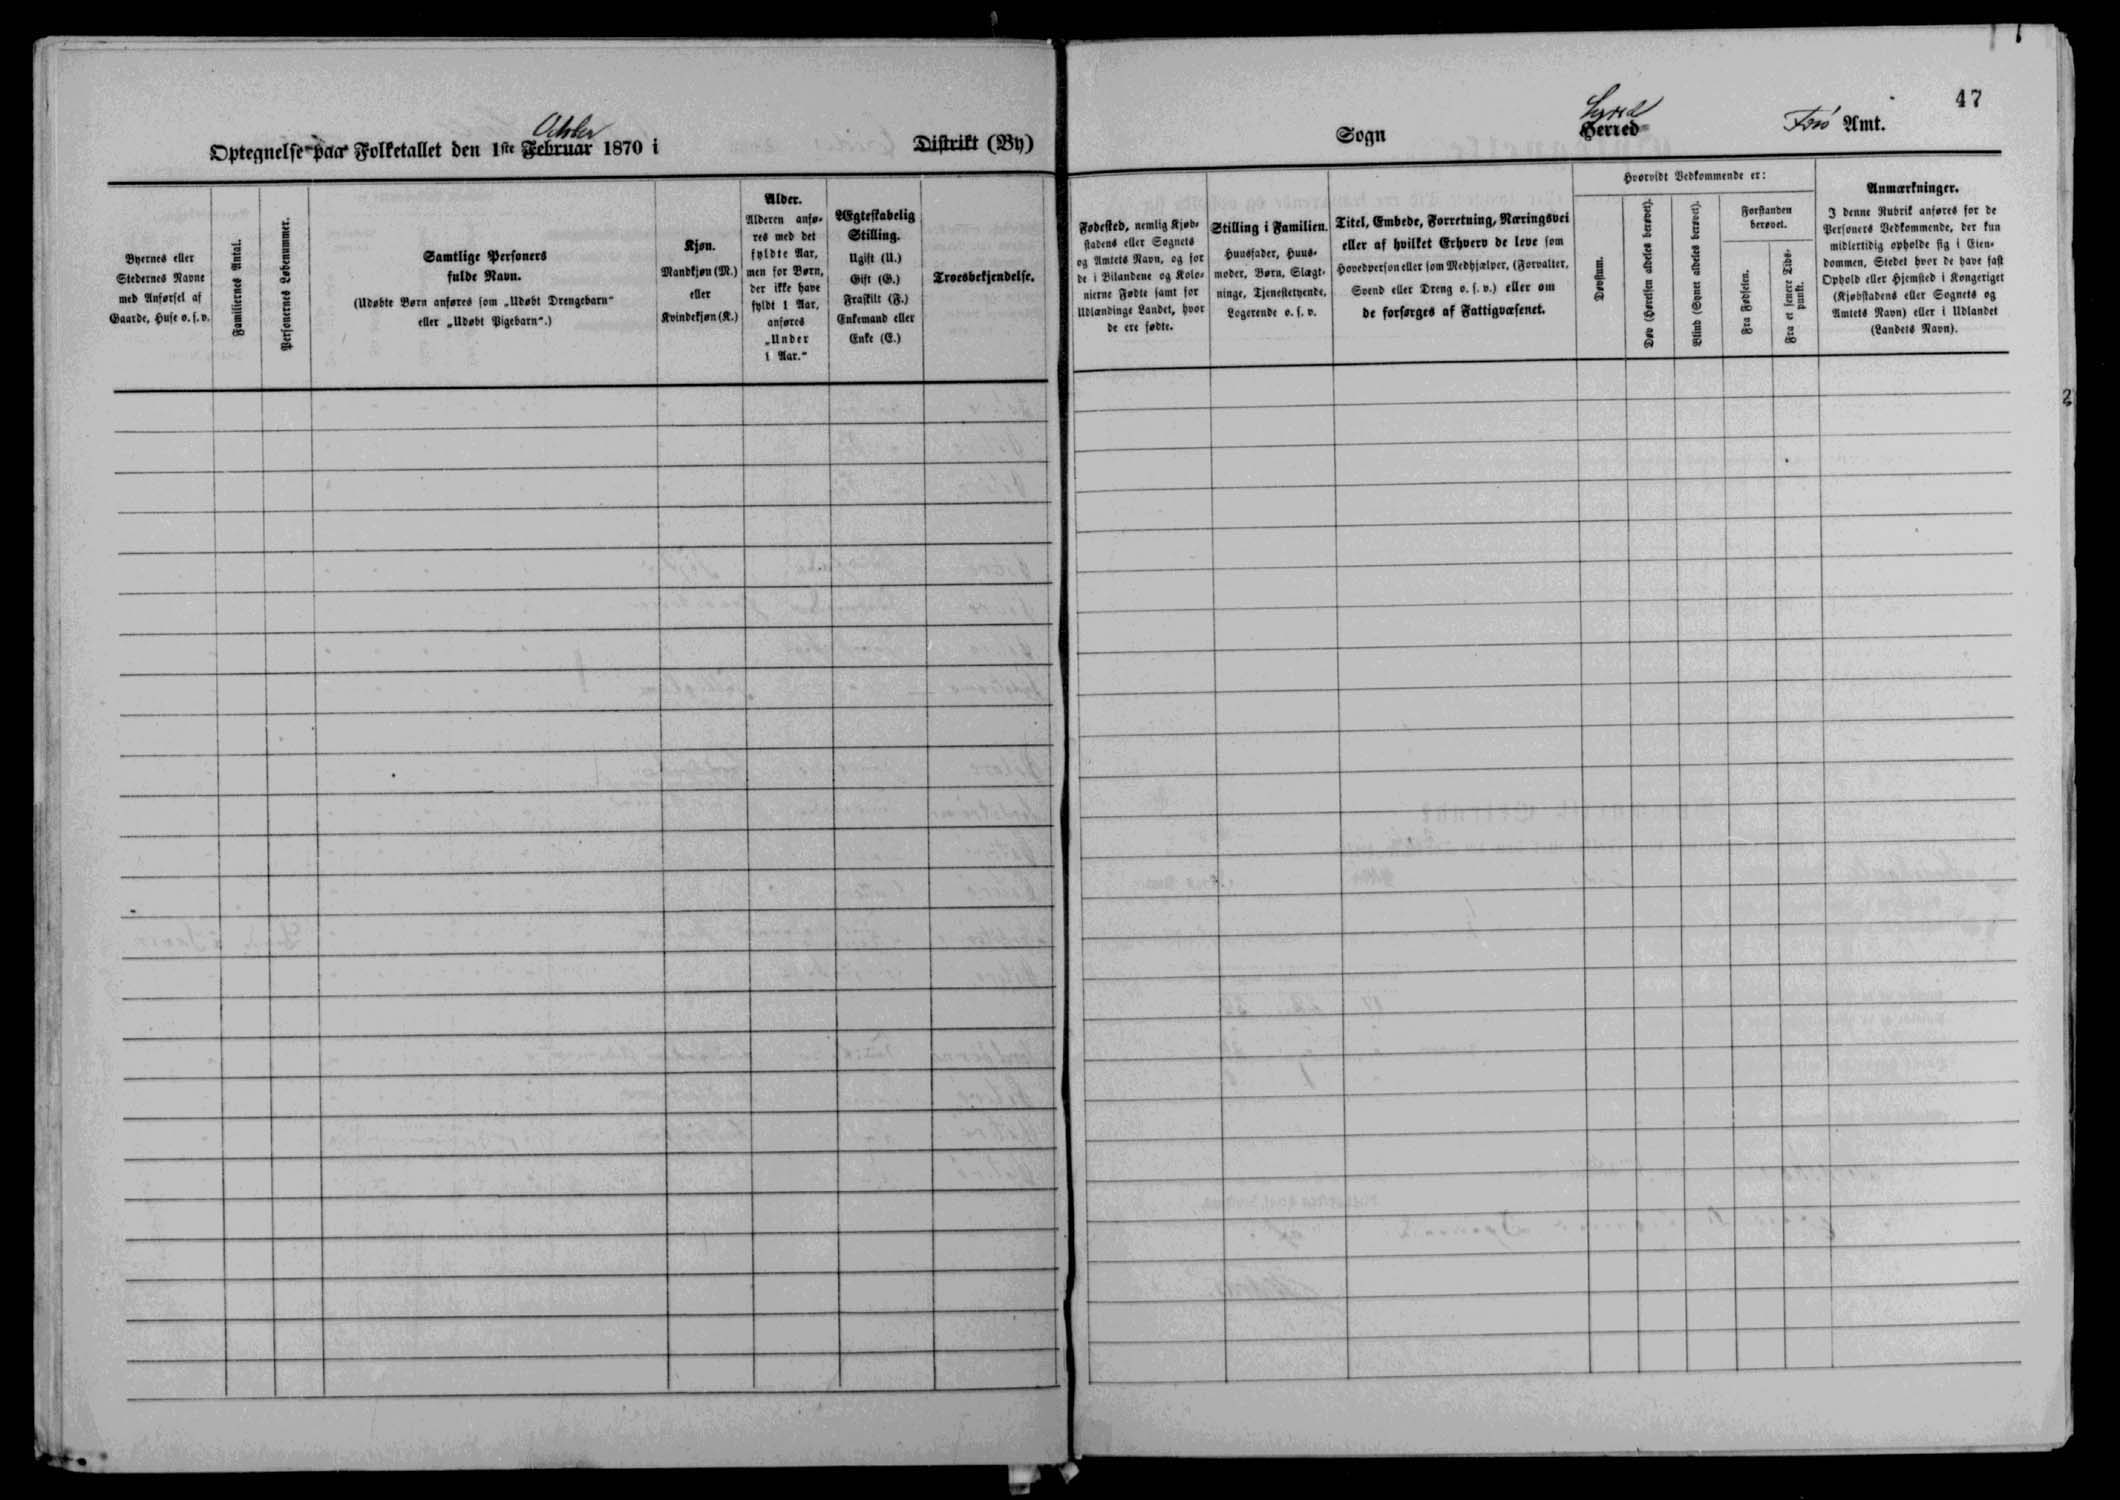 47
Octobr
Optegnelse paa Folketallet den 1ste Februar 1870 i Distrikt (By)
Byernes eller
Stedernes Navne
med Anførsel af
Gaarde, Huse o. s. v.
Familiernes Antal.
Personernes Løbenummer.
Samtlige Personers
fulde Navn.
(Udøbte Børn anføres som „Udøbt Drengebarn“
eller „Udøbt Pigebarn“.)
Kjøn.
Mandkjøn (M.)
eller
Kvindekjøn (K.)
Alder.
Alderen anfø-
res med det
fyldte Aar,
men for Børn,
der ikke have
fyldt 1 Aar,
anføres
„Under
1 Aar.“
Ægteskabelig
Stilling.
Ugift (U.)
Gift (G.)
Fraskilt (F.)
Enkemand eller
Enke (E.)
Troesbekjendelse.
Syssel
Sogn Herred Færø Amt.
Fødested, nemlig Kjøb-
stadens eller Sognets
og Amtets Navn, og for
de i Bilandene og Kolo-
nierne Fødte samt for
Udlændinge Landet, hvor
de ere fødte.
Stilling i Familien.
Huusfader, Huus-
moder, Børn, Slægt-
ninge, Tjenestetyende,
Logerende o. s. v.
Titel, Embede, Forretning, Næringsvei
eller af hvilket Erhverv de leve som
Hovedperson eller som Medhjælper, (Forvalter,
Svend eller Dreng o. s. v.) eller om
de forsørges af Fattigvæsenet.
Hvorvidt Vedkommende er:
Døvstum.
Døv (Hørelsen aldeles berøvet).
Blind (Synet aldeles berøvet).
Forstanden
berøvet.
Fra Fødselen.
Fra et senere Tids-
punkt.
Anmærkninger.
I denne Rubrik anføres for de
Personers Vedkommende, der kun
midlertidig opholde sig i Eien-
dommen, Stedet hvor de have fast
Ophold eller Hjemsted i Kongeriget
(Kjøbstadens eller Sognets og
Amtets Navn) eller i Udlandet
(Landets Navn).
2